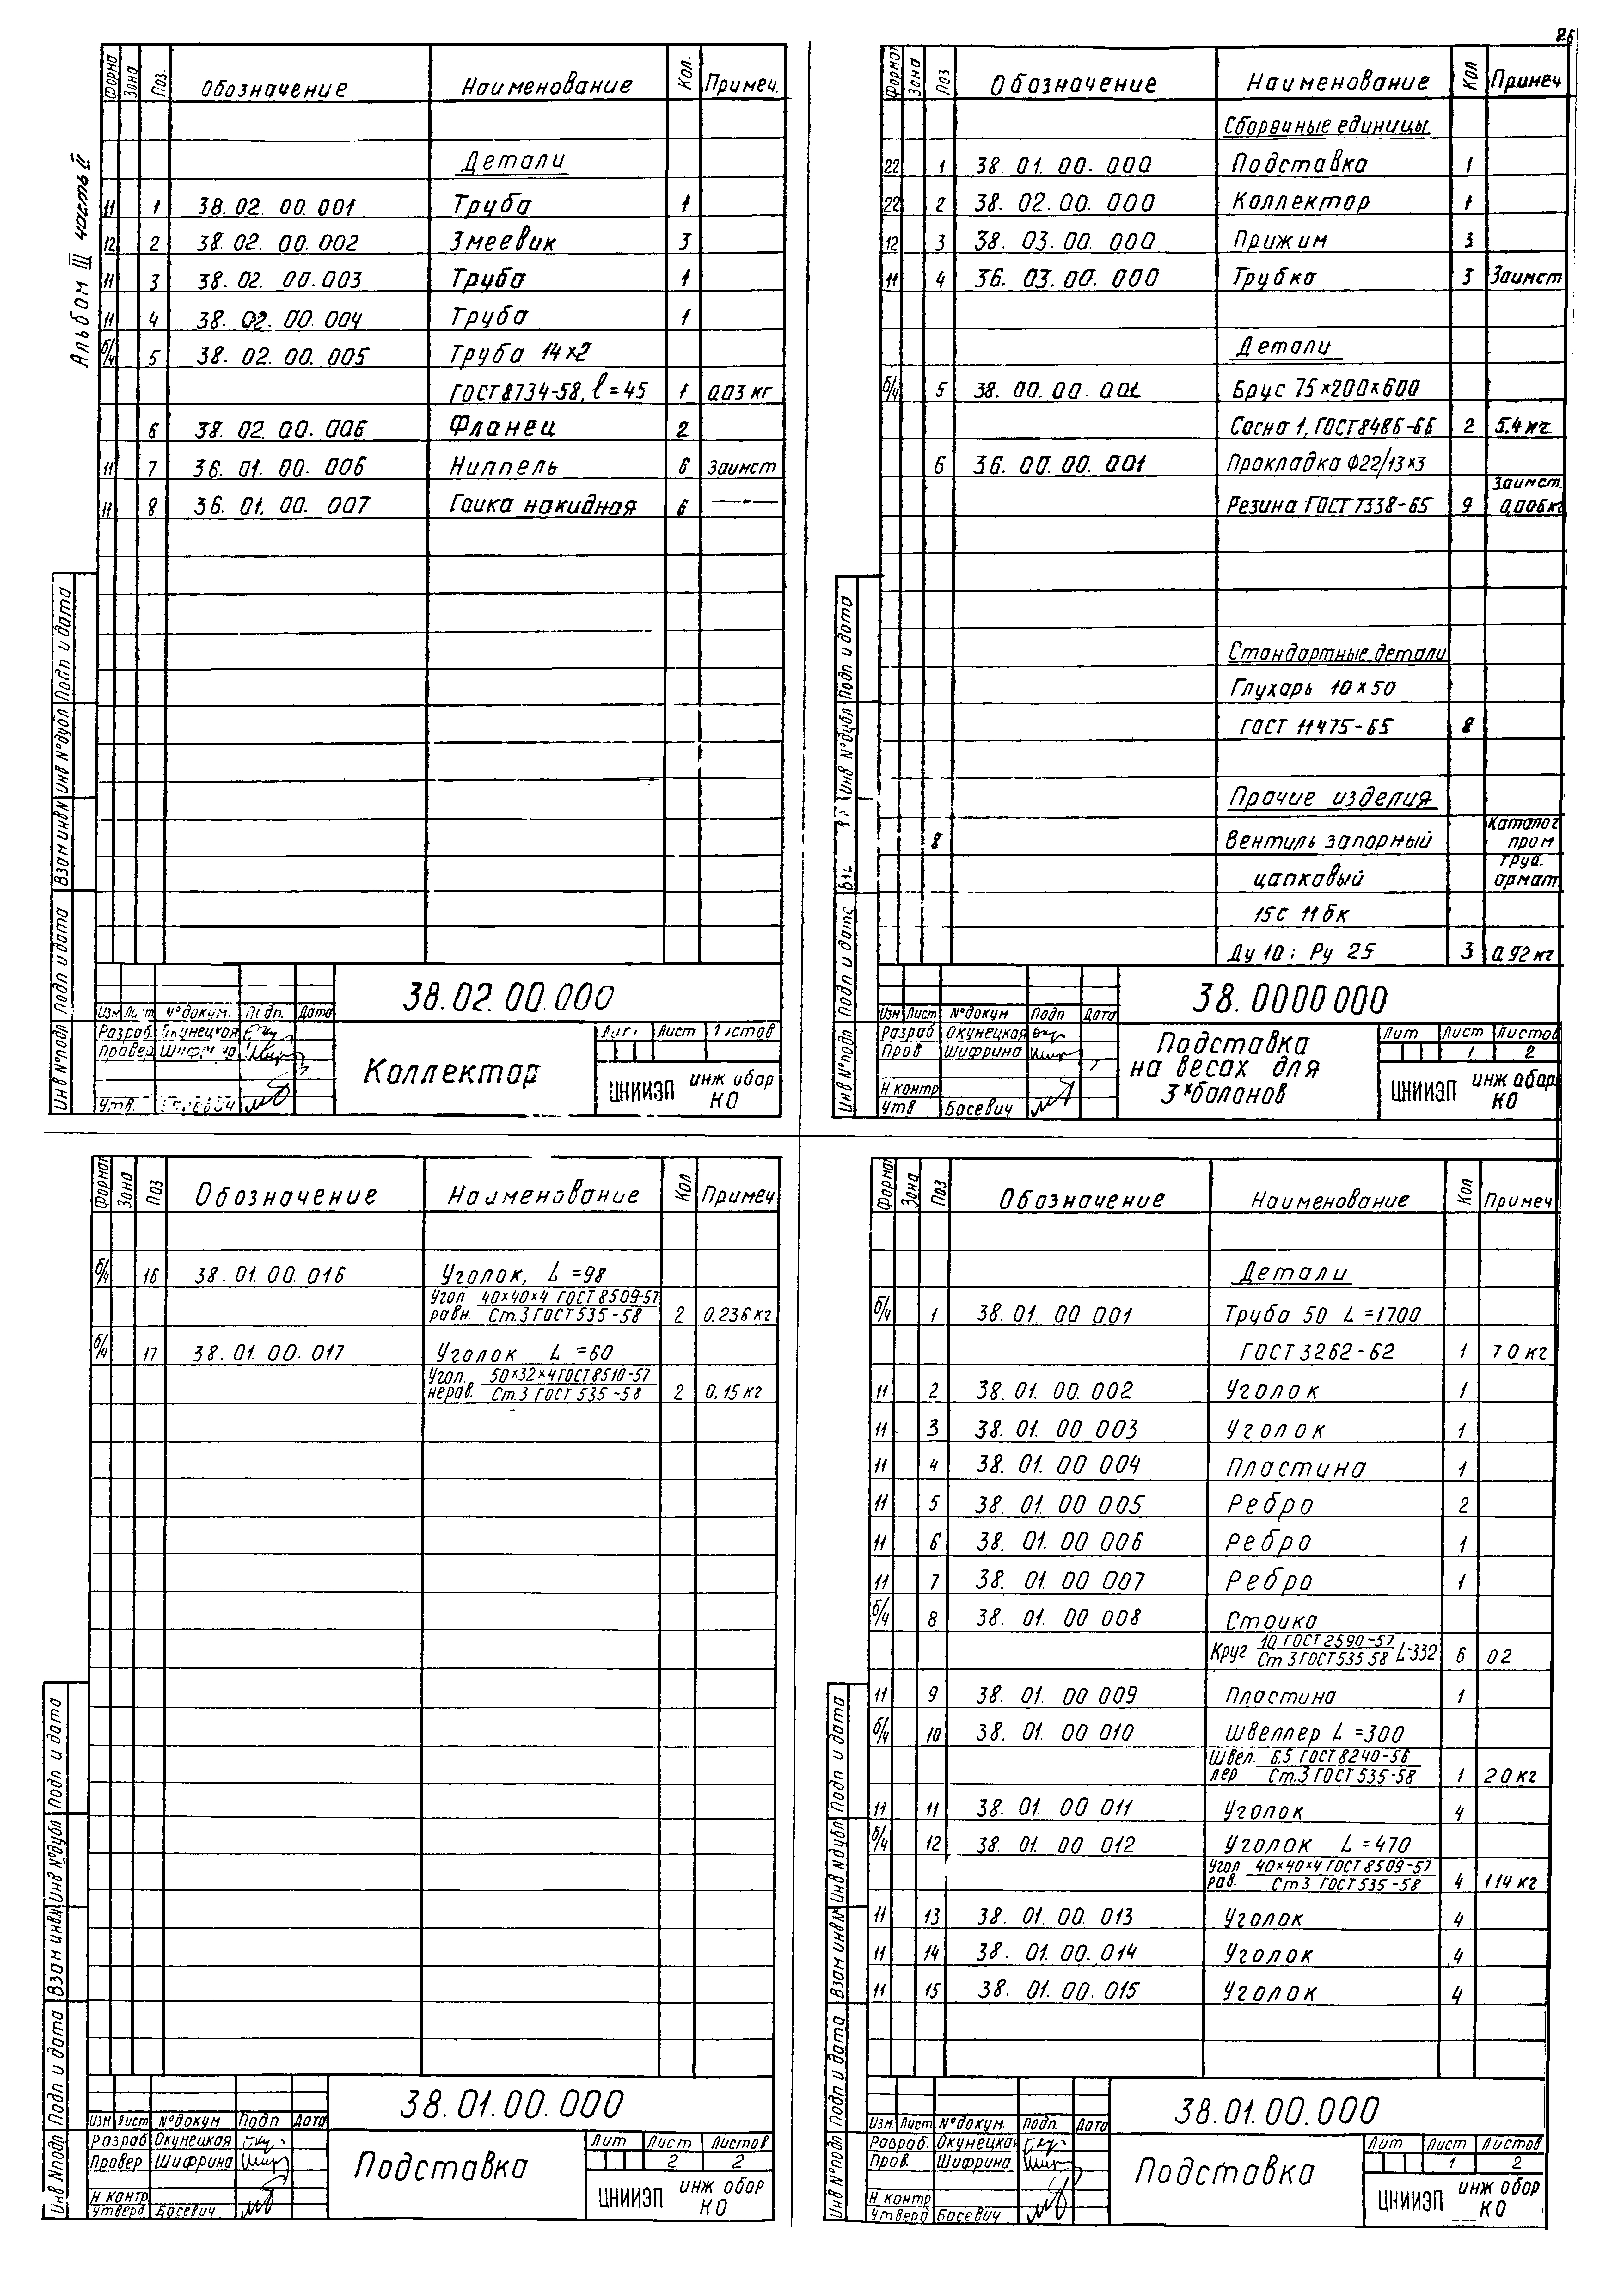 26
Альбом III часть II
Формат Зона Поз. Обозначение Наименование Кол. Примеч.
Детали
11 1 38.02.00.001 Труба 1
12 2 38.02.00.002 Змеевик 3
11 3 38.02.00.003 Труба 1
11 4 38.02.00.004 Труба 1
б/ч 5 38.02.00.005 Труба 14×2
ГОСТ 8734-58, l=45 1 0.03 кг
6 38.02.00.006 Фланец 2
11 7 36.01.00.006 Ниппель 6 Заимст
11 8 36.01.00.007 Гайка накидная 6 —"—
Инв №подл Подп и дата Взам инв№ Инв №дубл Подп и дата
38.02.00.000
Изм Лист №докум. Подп. Дата
Разраб. Окунецкая
Провер Шифрина
Утв. Басевич
Коллектор
Лит Лист Листов
ЦНИИЭП инж обор
КО
Формат Зона Поз Обозначение Наименование Кол Примеч
Сборачные единицы
22 1 38.01.00.000 Подставка 1
22 2 38.02.00.000 Коллектор 1
12 3 38.03.00.000 Прижим 3
11 4 36.03.00.000 Трубка 3 Заимст
Детали
б/ч 5 38.00.00.001 Брус 75×200×600
Сосна 1, ГОСТ 8486-66 2 5.4 кг
6 36.00.00.001 Прокладка Ф22/13×3
Заимст.
Резина ГОСТ 7338-65 9 0,006кг
Стандартные детали
Глухарь 10×50
ГОСТ 11475-65 8
Прочие изделия
8 Вентиль запорный Каталог пром
цапковый труб. армат.
15с 11бк
Ду 10; Ру 25 3 0,92 кг
Инв №подл Подп и дата Инв №дубл Подп и дата
38.0000000
Изм Лист №докум Подп Дата
Разраб Окунецкая
Пров Шифрина
Н контр
Утв Басевич
Подставка
на весах для
3х балонов
Лит Лист Листов
1 2
ЦНИИЭП инж обор
КО
Формат Зона Поз Обозначение Наименование Кол Примеч
б/ч 16 38.01.00.016 Уголок, L=98
Угол 40×40×4 ГОСТ 8509-57
равн. Ст.3 ГОСТ 535-58 2 0.236 кг
б/ч 17 38.01.00.017 Уголок L=60
Угол. 50×32×4 ГОСТ 8510-57
нерав. Ст.3 ГОСТ 535-58 2 0,15 кг
Инв №подл Подп и дата Взам инв№ Инв №дубл Подп и дата
38.01.00.000
Изм Лист №докум Подп Дата
Разраб Окунецкая
Провер Шифрина
Н контр
Утверд Басевич
Подставка
Лит Лист Листов
2 2
ЦНИИЭП инж обор
КО
Формат Зона Поз Обозначение Наименование Кол Примеч
Детали
б/ч 1 38.01.00 001 Труба 50 L=1700
ГОСТ 3262-62 1 70 кг
11 2 38.01.00 002 Уголок 1
11 3 38.01.00 003 Уголок 1
11 4 38.01.00 004 Пластина 1
11 5 38.01.00 005 Ребро 2
11 6 38.01.00 006 Ребро 1
11 7 38.01.00 007 Ребро 1
б/ч 8 38.01.00 008 Стоика
Круг 10 ГОСТ 2590-57
Ст 3 ГОСТ 535 58 L-332 6 02
11 9 38.01.00 009 Пластина 1
б/ч 10 38.01.00 010 Швеллер L=300
Швел. 6.5 ГОСТ 8240-56
лер Ст.3 ГОСТ 535-58 1 20 кг
11 11 38.01.00 011 Уголок 4
б/ч 12 38.01.00 012 Уголок L=470
Угол 40×40×4 ГОСТ 8509-57
рав. Ст3 ГОСТ 535-58 4 114 кг
11 13 38.01.00.013 Уголок 4
11 14 38.01.00.014 Уголок 4
11 15 38.01.00.015 Уголок 4
Инв №подл Подп и дата Взам инв№ Инв №дубл Подп и дата
38.01.00.000
Изм Лист №докум. Подп. Дата
Разраб. Окунецкая
Пров. Шифрина
Н контр
Утверд Басевич
Подставка
Лит Лист Листов
1 2
ЦНИИЭП инж обор
КО